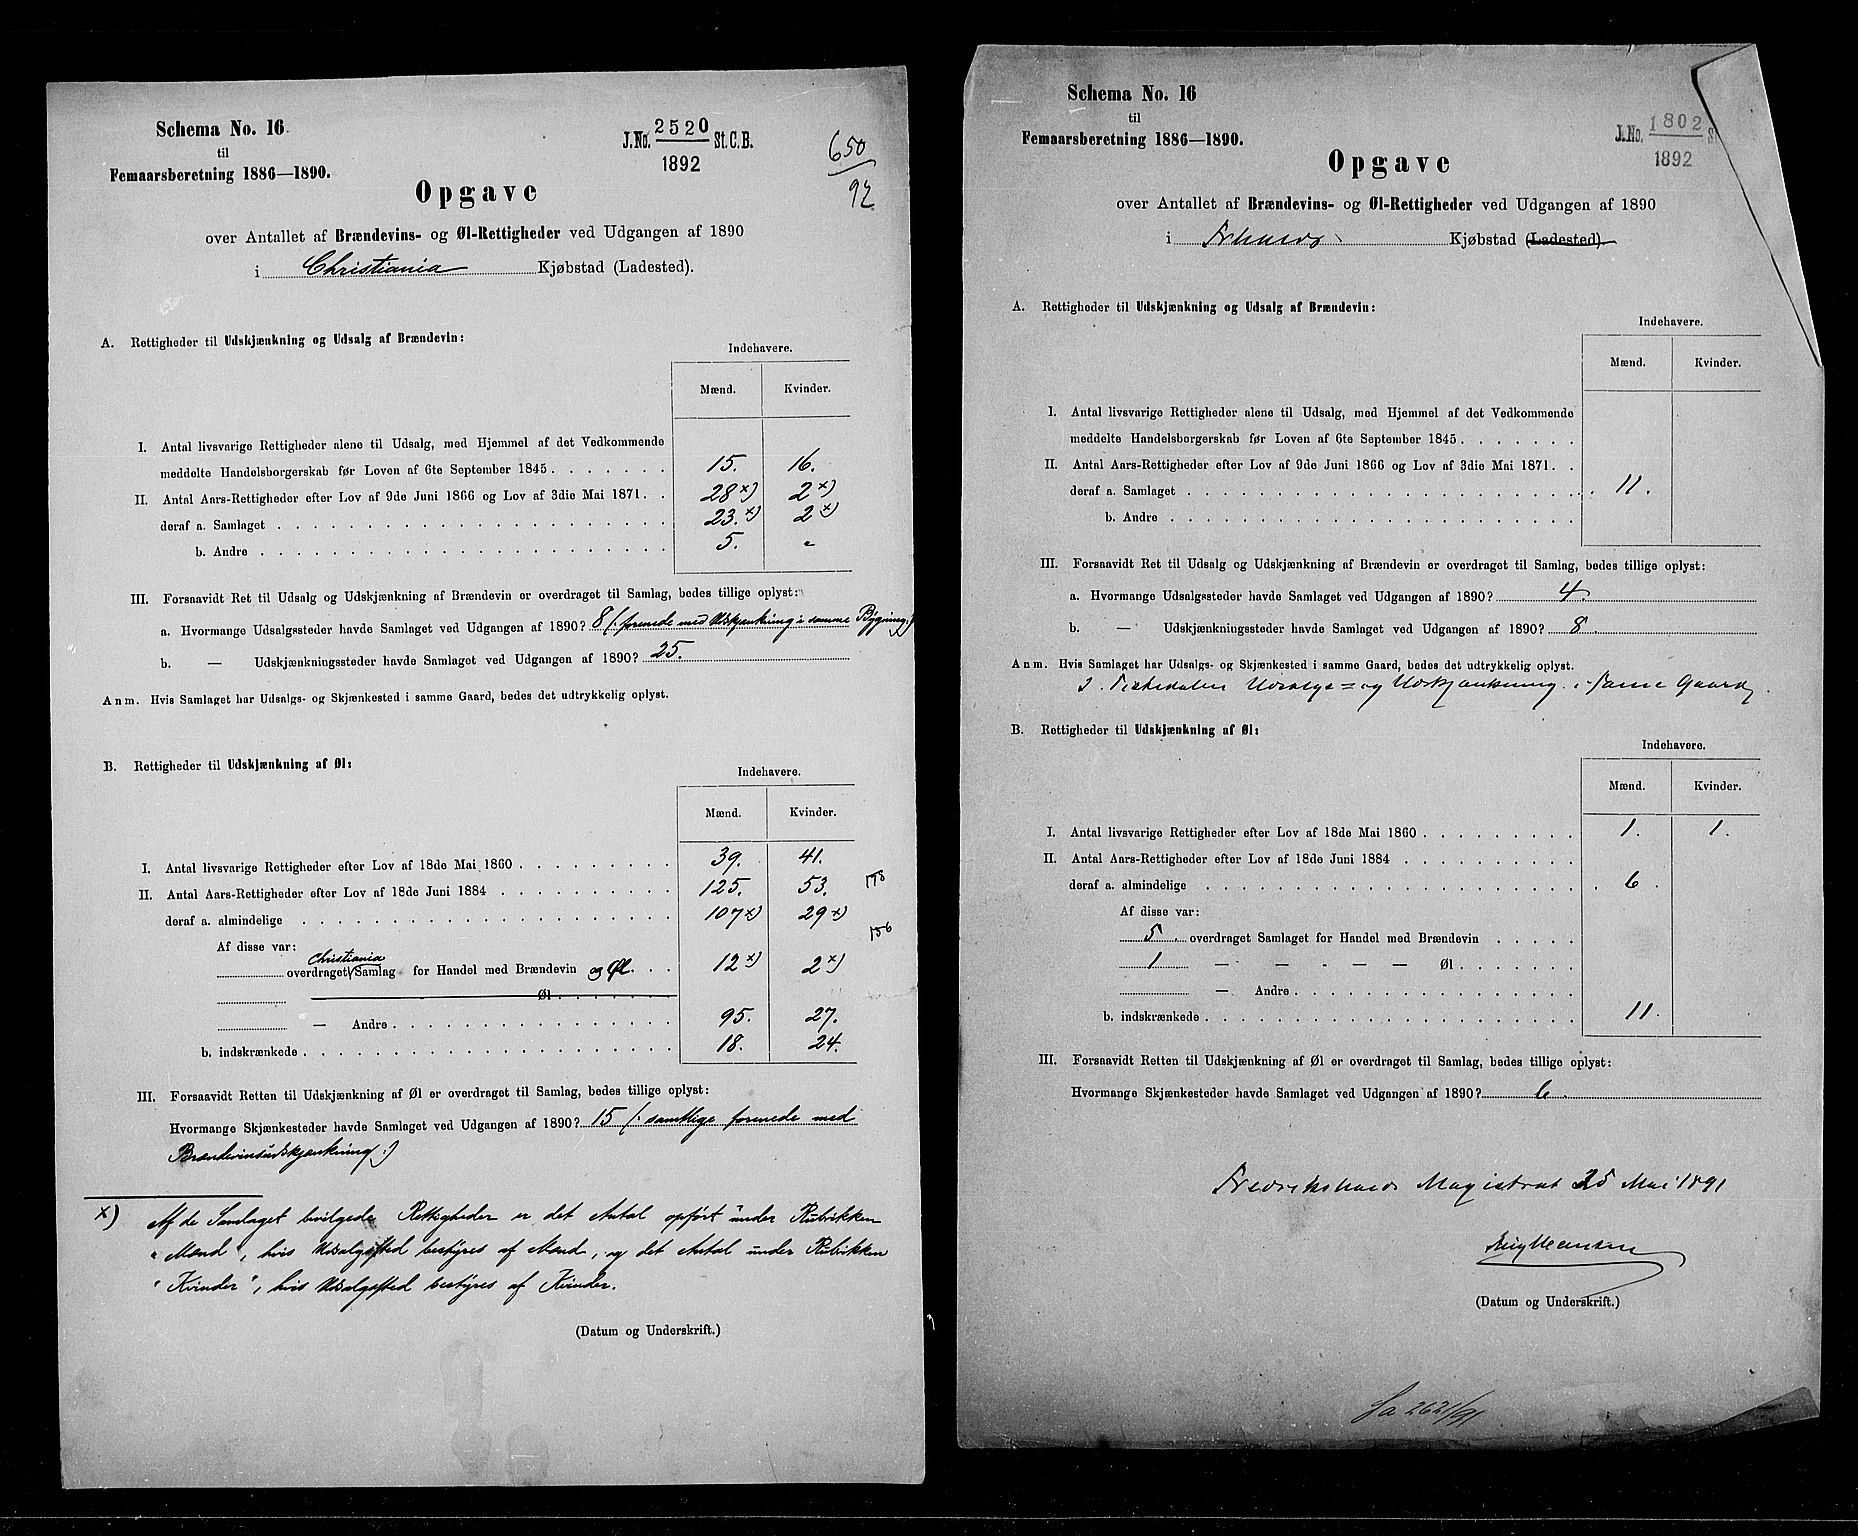 Schema No. 16
til
Femaarsberetning 1886—1890.
J. No. 2520 St. C. B.
1892
650
92
Opgave
over Antallet af Brændevins- og Øl-Rettigheder ved Udgangen af 1890
i Christiania Kjøbstad (Ladested).
A. Rettigheder til Udskjænkning og Udsalg af Brændevin:
Indehavere.
Mænd. Kvinder.
I. Antal livsvarige Rettigheder alene til Udsalg, med Hjemmel af det Vedkommende
meddelte Handelsborgerskab før Loven af 6te September 1845 . . . . . . . 15. 16.
II. Antal Aars-Rettigheder efter Lov af 9de Juni 1866 og Lov af 3die Mai 1871 . . 28 x) 2 x)
deraf a. Samlaget . . . . . . 23. x) 2 x)
b. Andre . . . . . . 5. "
III. Forsaavidt Ret til Udsalg og Udskjænkning af Brændevin er overdraget til Samlag, bedes tillige oplyst:
a. Hvormange Udsalgssteder havde Samlaget ved Udgangen af 1890? 8 (: forenede med Udskjænkning i samme Bygning :)
b. — Udskjænkningssteder havde Samlaget ved Udgangen af 1890? 25.
Anm. Hvis Samlaget har Udsalgs- og Skjænkested i samme Gaard, bedes det udtrykkelig oplyst.
B. Rettigheder til Udskjænkning af Øl:
Indehavere.
Mænd. Kvinder.
I. Antal livsvarige Rettigheder efter Lov af 18de Mai 1860 . . . . . . 39. 41.
II. Antal Aars-Rettigheder efter Lov af 18de Juni 1884 . . . . . . 125. 53. 178
deraf a. almindelige . . . . . . 107 x) 29 x)
136
Af disse var:
Christiania
overdraget Samlag for Handel med Brændevin og Øl. . . . 12 x) 2 x)
Øl . . . . . .
— Andre . . . . . . 95. 27.
b. indskrænkede . . . . . . 18. 24.
III. Forsaavidt Retten til Udskjænkning af Øl er overdraget til Samlag, bedes tillige oplyst:
Hvormange Skjænkesteder havde Samlaget ved Udgangen af 1890? 15 (: samtlige forenede med
Brændevinsudskjænkning :)
x) Af de Samlaget bevilgede Rettigheder er det Antal opført under Rubrikken
"Mænd", hvis Udsalgssted bestyres af Mænd, og det Antal under Rubrikken
"Kvinder", hvis Udsalgssted bestyres af Kvinder.
(Datum og Underskrift.)
Schema No. 16
til
Femaarsberetning 1886—1890.
J. No. 1802 St
1892
Opgave
over Antallet af Brændevins- og Øl-Rettigheder ved Udgangen af 1890
i Frhald Kjøbstad (Ladested).
A. Rettigheder til Udskjænkning og Udsalg af Brændevin:
Indehavere.
Mænd. Kvinder.
I. Antal livsvarige Rettigheder alene til Udsalg, med Hjemmel af det Vedkommende
meddelte Handelsborgerskab før Loven af 6te September 1845 . . . . . . .
II. Antal Aars-Rettigheder efter Lov af 9de Juni 1866 og Lov af 3die Mai 1871 . .
deraf a. Samlaget . . . . . . 11.
b. Andre . . . . . .
III. Forsaavidt Ret til Udsalg og Udskjænkning af Brændevin er overdraget til Samlag, bedes tillige oplyst:
a. Hvormange Udsalgssteder havde Samlaget ved Udgangen af 1890? 4.
b. — Udskjænkningssteder havde Samlaget ved Udgangen af 1890? 8
Anm. Hvis Samlaget har Udsalgs- og Skjænkested i samme Gaard, bedes det udtrykkelig oplyst.
I Tistedalen Udsalgs= og Udskjænkning i samme Gaard.
B. Rettigheder til Udskjænkning af Øl:
Indehavere.
Mænd. Kvinder.
I. Antal livsvarige Rettigheder efter Lov af 18de Mai 1860 . . . . . . 1. 1.
II. Antal Aars-Rettigheder efter Lov af 18de Juni 1884 . . . . . .
deraf a. almindelige . . . . . . 6.
Af disse var:
5. overdraget Samlaget for Handel med Brændevin . . . . .
1 — - - — Øl . . . . . .
— Andre . . . . . .
b. indskrænkede . . . . . . 11.
III. Forsaavidt Retten til Udskjænkning af Øl er overdraget til Samlag, bedes tillige oplyst:
Hvormange Skjænkesteder havde Samlaget ved Udgangen af 1890? 6.
Fredrikshalds Magistrat 25 Mai 1891
(Datum og Underskrift.)
2621/91